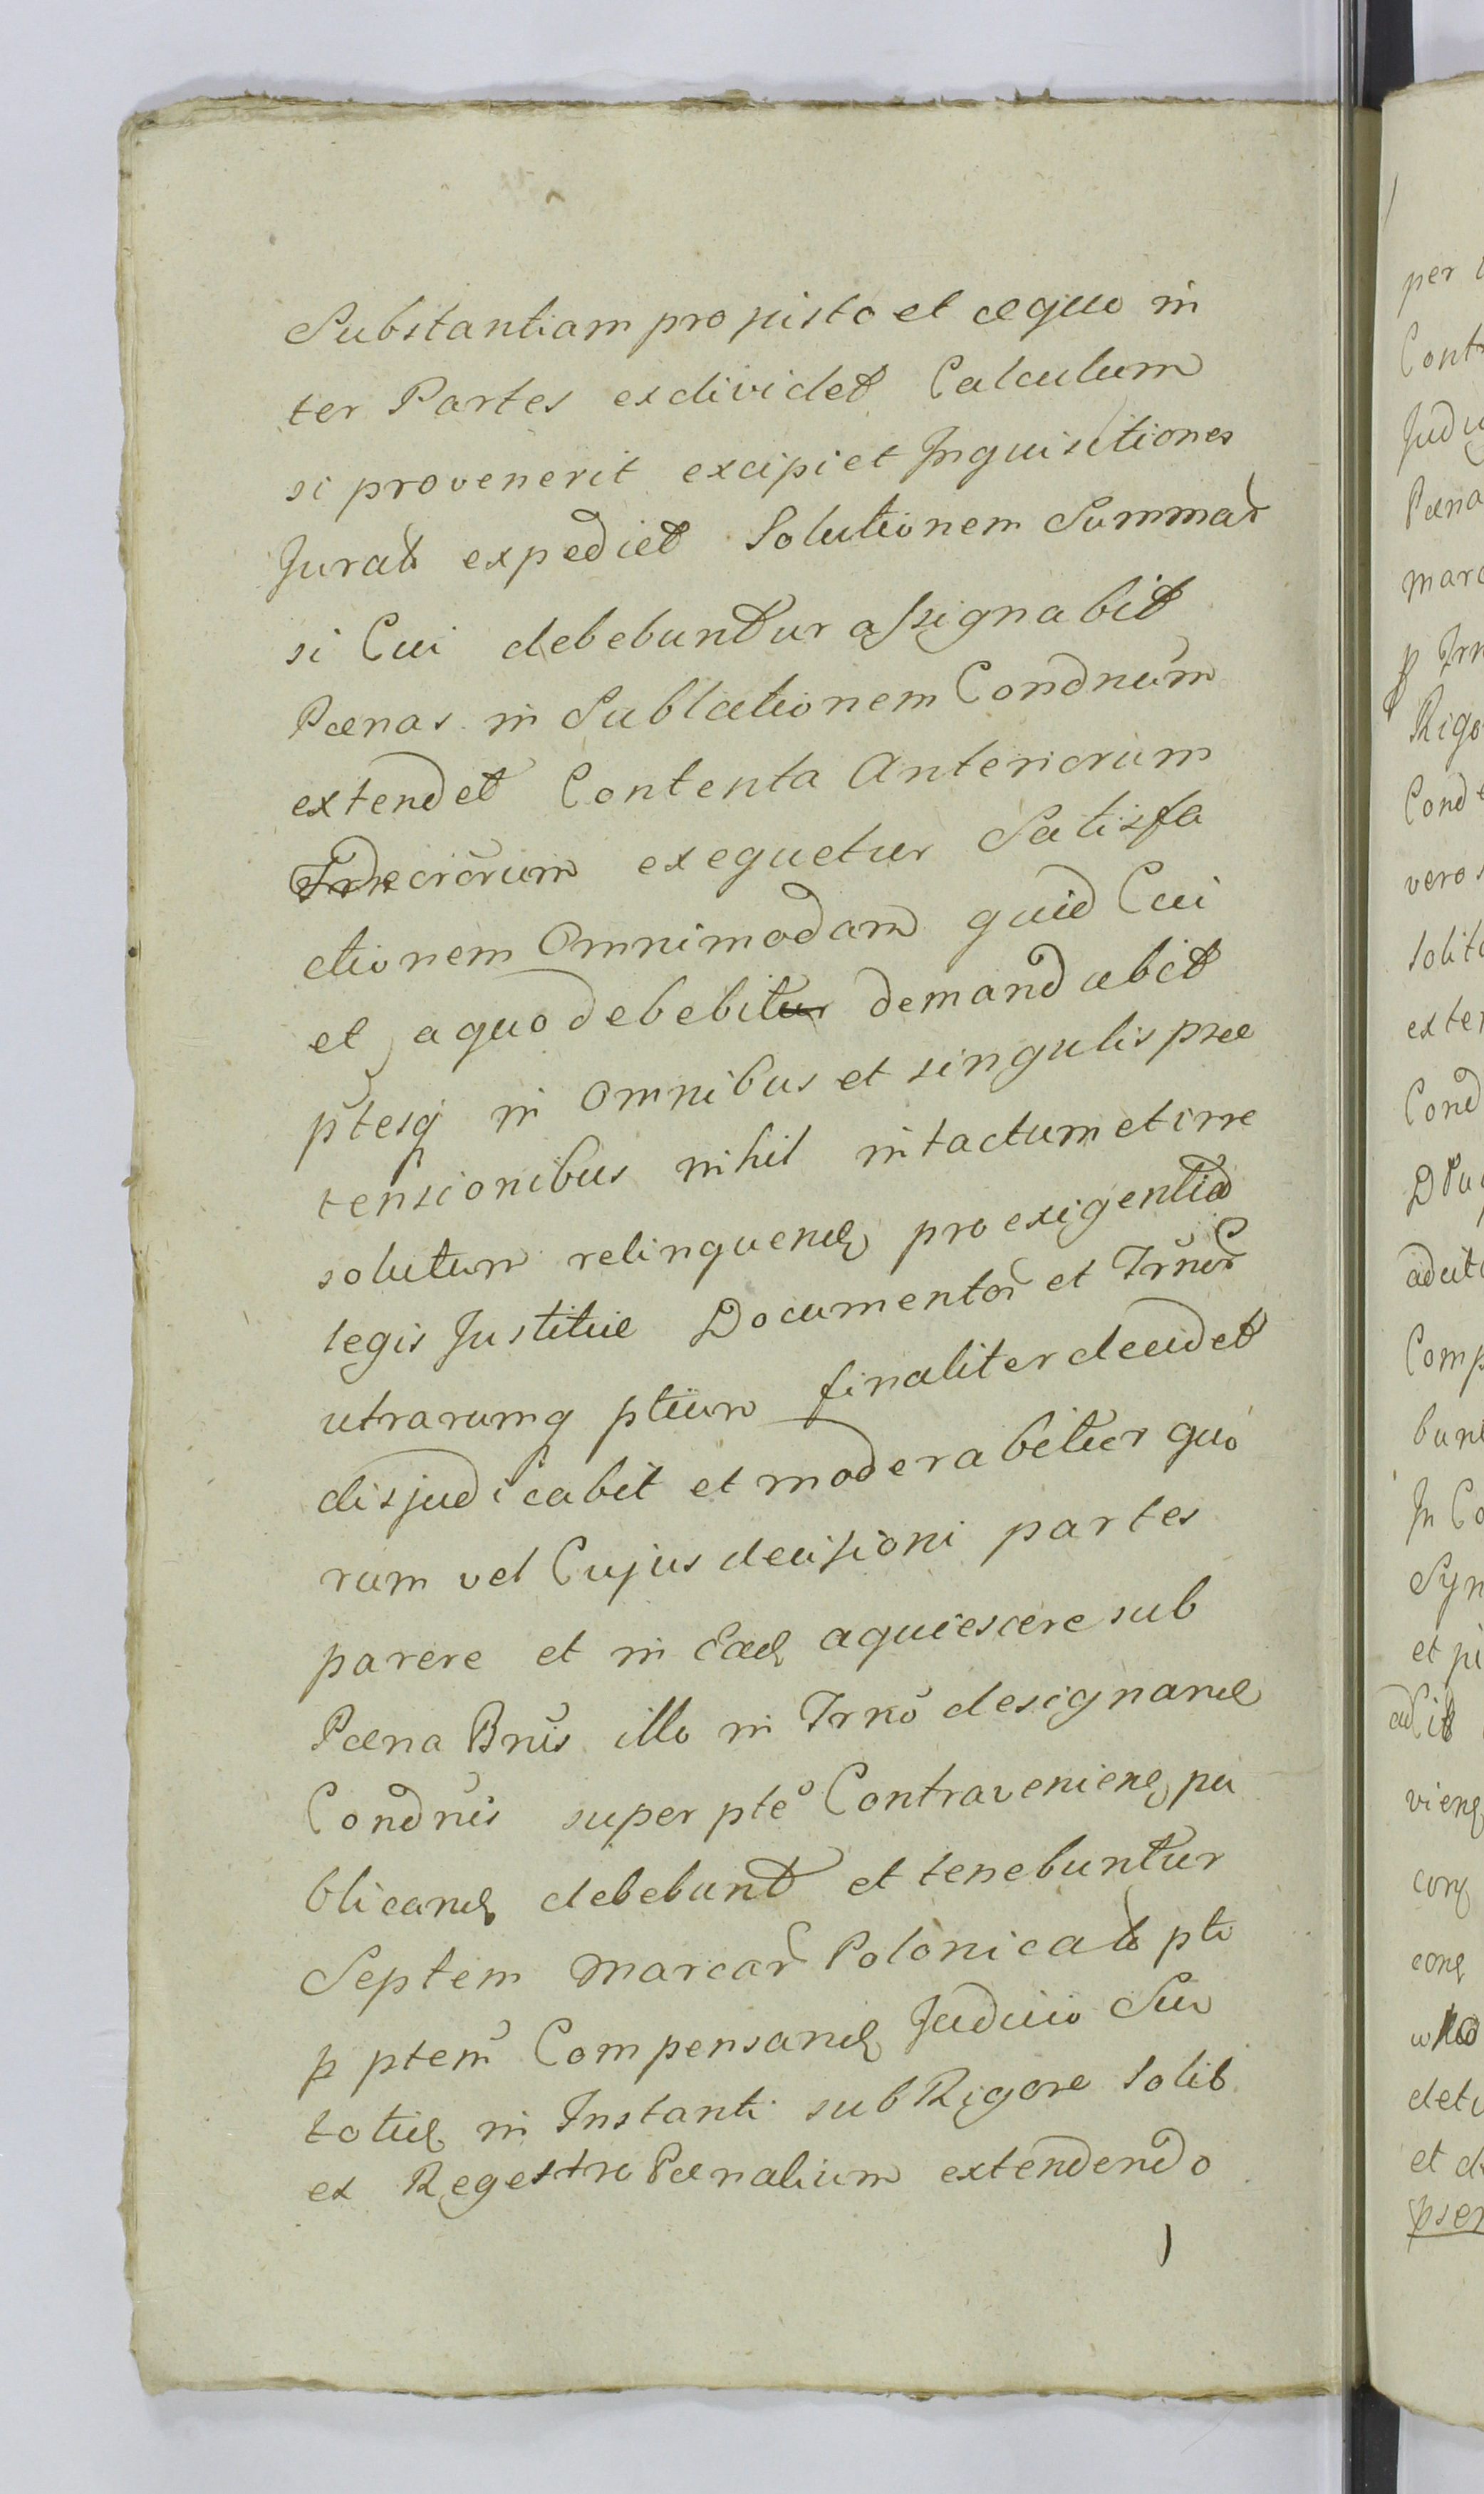 Substantiam pro justo et æquo in
ter Partes exdividet Calculum
si provenerit excipiet Inquisitiones
Jurat expediet Solutionem Summar
si Cui debebuntur assignabit
Pœnas in Sublationem Condnum
extendet Contenta Anteriorum
exequetur Satisfa
ctionem Omnimodam quid Cui
et a quo debebitur demandabit
ptesq in Omnibus et singulis præ
tensionibus nihil intactum et irre
solutum relinquend pro exigentia
legis Justitiæ Documentor et Trnor
utrarumq ptium finaliter decidet
disjudicabit et moderabitur quo
rum vel Cujus decisioni partes
parere et in Ead aquiescere sub
Pœna Bnis illo in Trno designand
Condnis super pte Contravenien pu
blicand debebunt et tenebuntur
Septem Marcar Polonicat pti
p ptem Compensand Judicio Su
totied in Instanti sub Rigore Solit
ex Regestro Pœnalium extendendo
per
Cont
Judi
Pœna
marc
p Trn
Rigo
Cond
vero
solit
exte
Cond
Comp
bun
In Co
Syn
et
et d